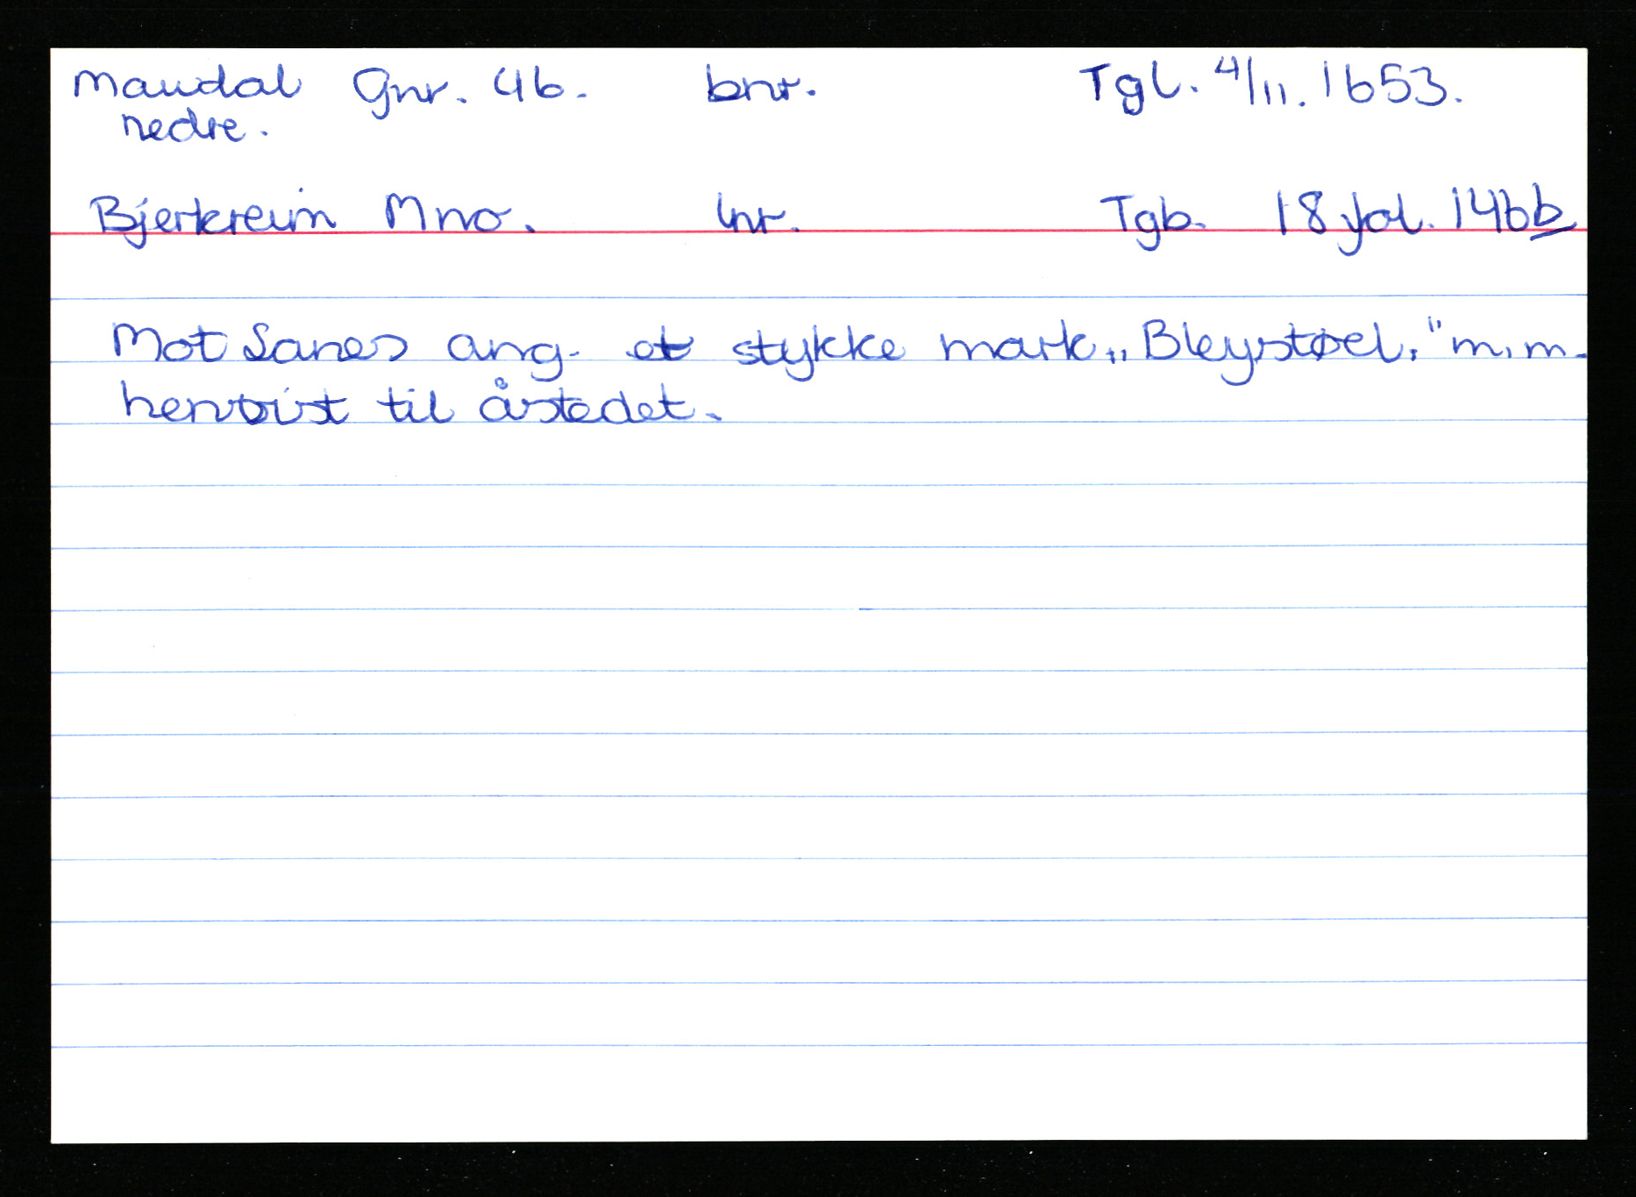 Maudal Gnr. 46. bnr. Tgl. 4/11. 1653.
nedre.
Bjerkreim Mno. lnr. Tgb. 18 fol. 146b
Mot Sanes ang. et stykke mark „Bleystøel," m.m.
henvist til åstedet.